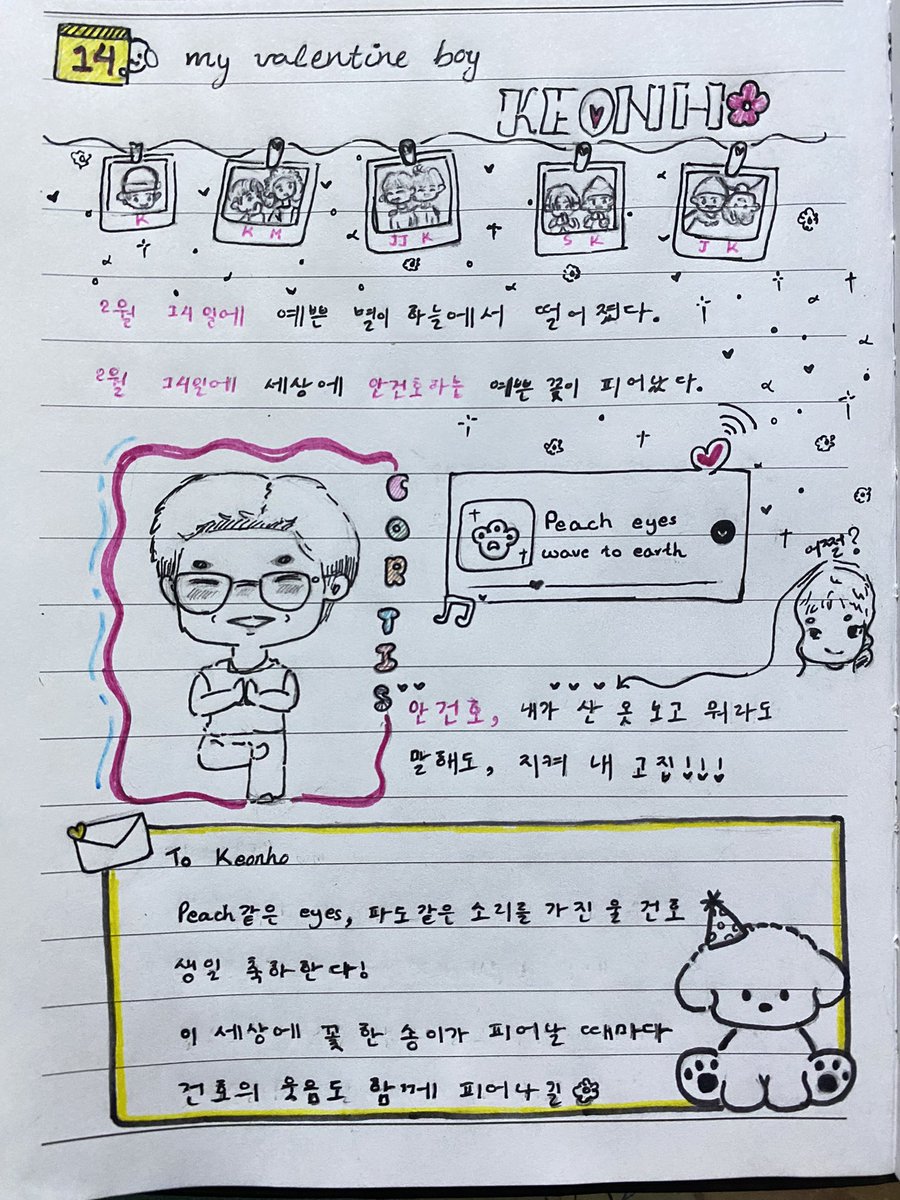 14 my valentine boy
KEONHO
K
K M
JJ K
S K
J K
2월 14일에 예쁜 별이 하늘에서 떨어졌다.
2월 14일에 세상에 안건호라는 예쁜 꽃이 피어났다.
CORTIS
Peach eyes
wave to earth
어쩔?
안건호, 내가 산 옷 보고 뭐라도
말해도, 지켜 내 고집!!!
To Keonho
Peach같은 eyes, 파도같은 소리를 가진 울 건호
생일 축하한다!
이 세상에 꽃 한 송이가 피어날 때마다
건호의 웃음도 함께 피어나길